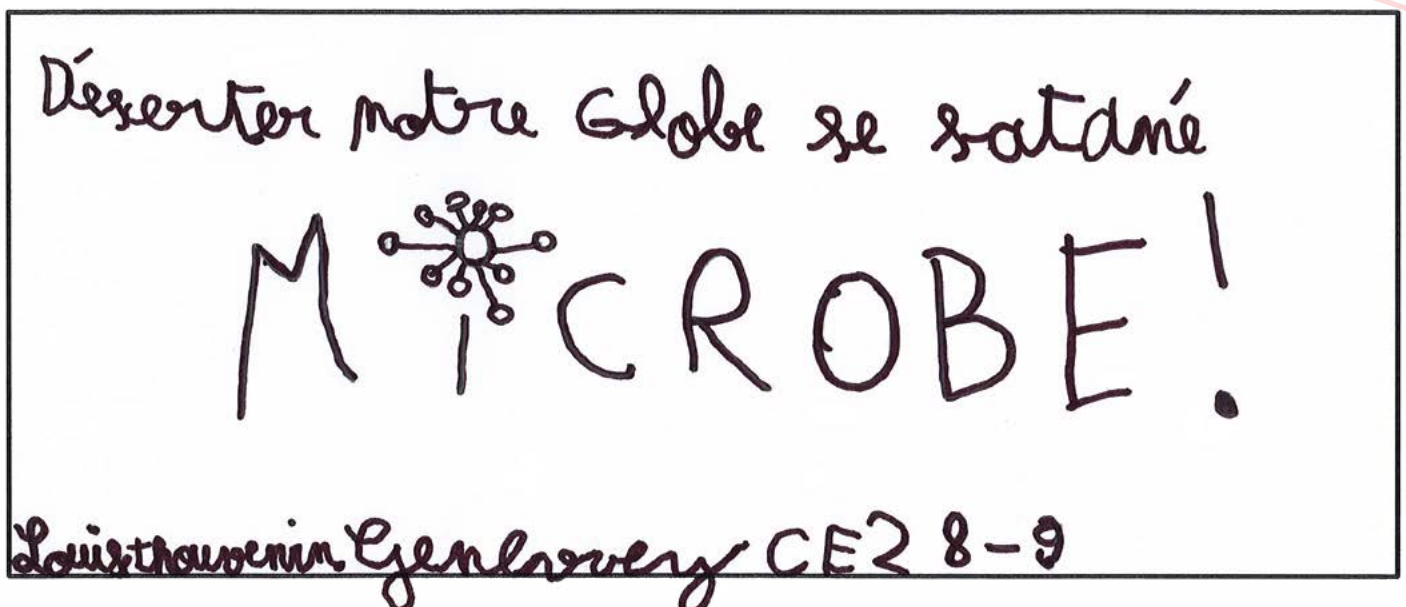 Déserter notre Globe se satané
MiCROBE!
Louis thouvenin Genlovery CE2 8-9